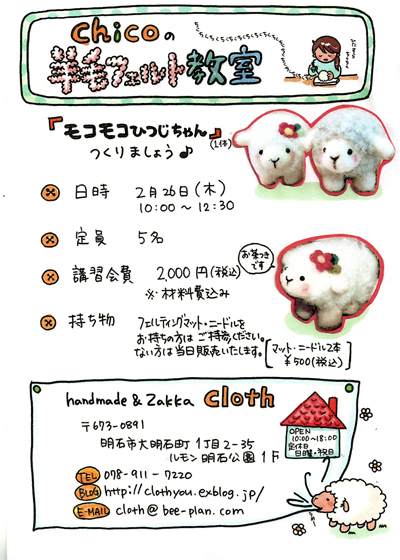 chicoの
羊毛フェルト教室
ちくちくちくちくちくちくちくちくちく
『モコモコひつじちゃん』(1体)
つくりましょう♪
日時 2月26日(木)
10:00～12:30
定員 5名
講習会費 2,000円(税込)
※材料費込み
お茶つきです
持ち物 フェルティングマット・ニードルを
お持ちの方はご持参ください。
ない方は当日販売いたします。
[マット・ニードル2本
¥500(税込)]
handmade & Zakka cloth
〒673-0891
明石市大明石町1丁目2-35
ルモン明石公園1F
TEL 078-911-7220
BLOG http://clothyou.exblog.jp/
E-MAIL cloth@bee-plan.com
OPEN
10:00～18:00
定休日
日曜・祝日